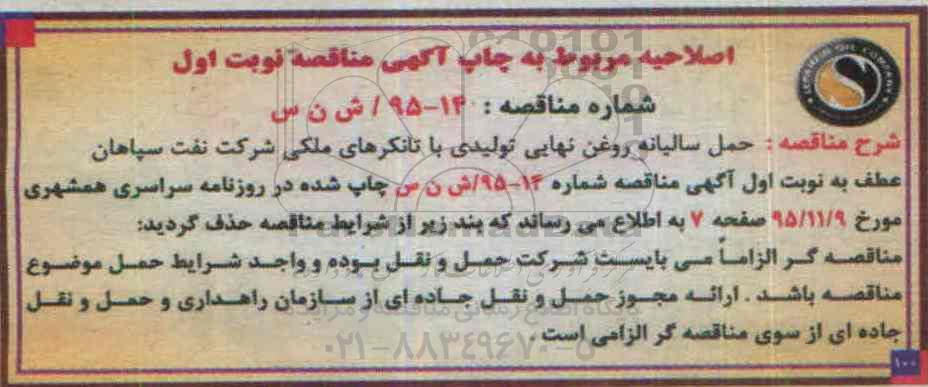 اصلاحیه مربوط به چاپ آگهی مناقصه نوبت اول
شماره مناقصه : ۱۴-۹۵ / ش ن س
شرح مناقصه : حمل سالیانه روغن نهایی تولیدی با تانکرهای ملکی شرکت نفت سپاهان
عطف به نوبت اول آگهی مناقصه شماره ۱۴-۹۵/ش ن س چاپ شده در روزنامه سراسری همشهری
مورخ ۹۵/۱۱/۹ صفحه ۷ به اطلاع می رساند که بند زیر از شرایط مناقصه حذف گردید:
مناقصه گر الزاماً می بایست شرکت حمل و نقل بوده و واجد شرایط حمل موضوع
مناقصه باشد . ارائه مجوز حمل و نقل جاده ای از سازمان راهداری و حمل و نقل
جاده ای از سوی مناقصه گر الزامی است .
۰۲۱-۸۸۳۴۹۶۷۰-۵
۱۰۰